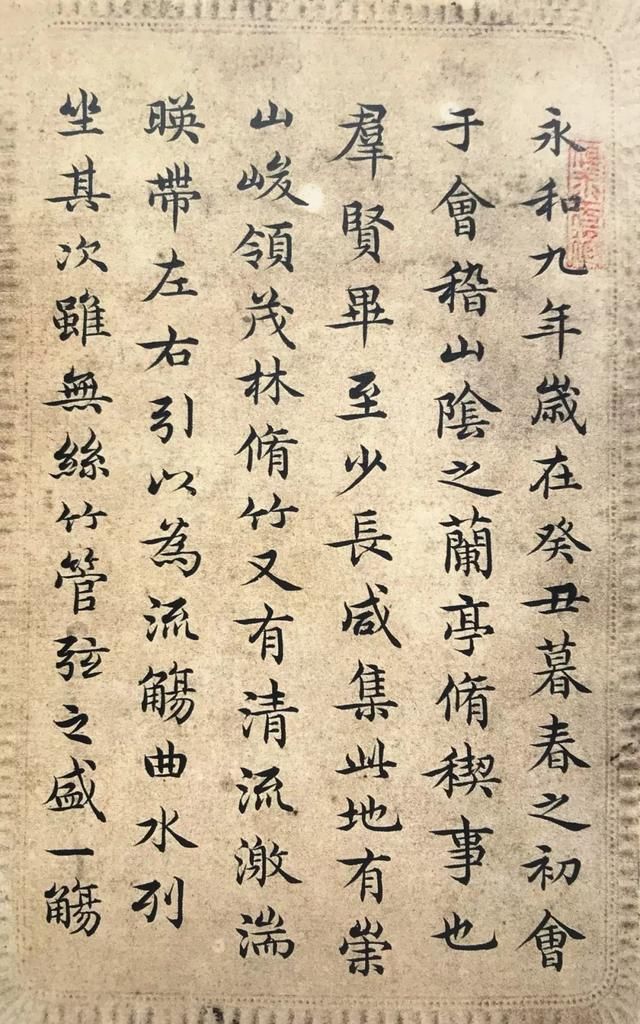 永和九年歲在癸丑暮春之初會
于會稽山陰之蘭亭脩稧事也
羣賢畢至少長咸集此地有崇
山峻領茂林脩竹又有清流激湍
暎帶左右引以為流觴曲水列
坐其次雖無絲竹管弦之盛一觴